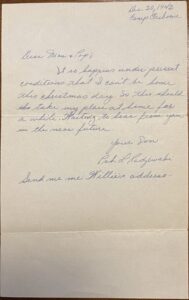 Dec. 20, 1942
Camp
Dear Mom & Pop;
It so happens under present
conditions that I can't be home
this christmas day. So this should
take my place at home for
a while. Waiting to hear from you
in the near future
Your Son
Send me